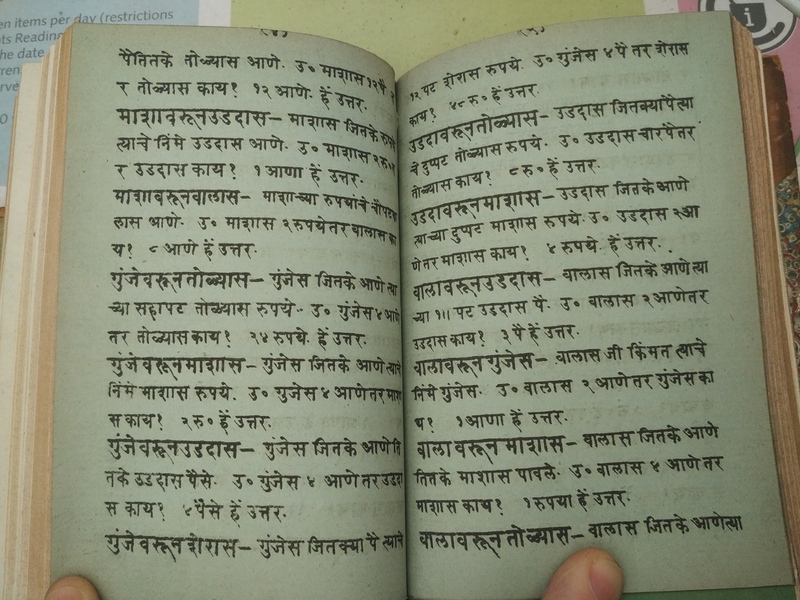 en items per day (restrictions
ts Reading
the date
पैतितके तोळ्यास आणे. उ० माशास १२ पै
र तोळ्यास काय? १२ आणे. हें उत्तर.
माशावरून उडदास— माशास जितके रुपये
त्याचे निंमे उडदास आणे. उ० माशास २ रु०
र उडदास काय? १ आणा हें उत्तर.
माशावरून वालास— माशाच्या रुपयांचे चौपट
लास आणे. उ० माशास २ रुपये तर वालास का
य? ८ आणे हें उत्तर.
गुंजेवरून तोळ्यास— गुंजेस जितके आणे त्या
च्या सहापट तोळ्यास रुपये. उ० गुंजेस ४ आणे
तर तोळ्यास काय? २४ रुपये. हें उत्तर.
गुंजेवरून माशास— गुंजेस जितके आणे त्याचे
निंमे माशास रुपये. उ० गुंजेस ४ आणे तर माशा
स काय? २ रु० हें उत्तर.
गुंजेवरून उडदास— गुंजेस जितके आणे ति
तके उडदास पैसे. उ० गुंजेस ४ आणे तर उडदा
स काय? ४ पैसे हें उत्तर.
गुंजेवरून शेरास— गुंजेस जितक्या पै त्याचे
१२ पट शेरास रुपये. उ० गुंजेस ४ पै तर शेरास
काय? ४८ रु० हें उत्तर.
उडदावरून तोळ्यास— उडदास जितक्या पै त्या
चे दुप्पट तोळ्यास रुपये. उ० उडदास चार पै तर
तोळ्यास काय? ८ रु० हें उत्तर.
उडदावरून माशास— उडदास जितके आणे
त्याच्या दुप्पट माशास रुपये. उ० उडदास २ आ
णे तर माशास काय? ४ रुपये. हें उत्तर.
वालावरून उडदास— वालास जितके आणे त्या
च्या १॥ पट उडदास पै. उ० वालास २ आणे तर
उडदास काय? ३ पै हें उत्तर.
वालावरून गुंजेस— वालास जी किंमत त्याचे
निंमे गुंजेस. उ० वालास २ आणे तर गुंजेस का
य? १ आणा हें उत्तर.
वालावरून माशास— वालास जितके आणे
तितके माशास पावले. उ० वालास ४ आणे तर
माशास काय? १ रुपया हें उत्तर.
वालावरून तोळ्यास— वालास जितके आणे त्या